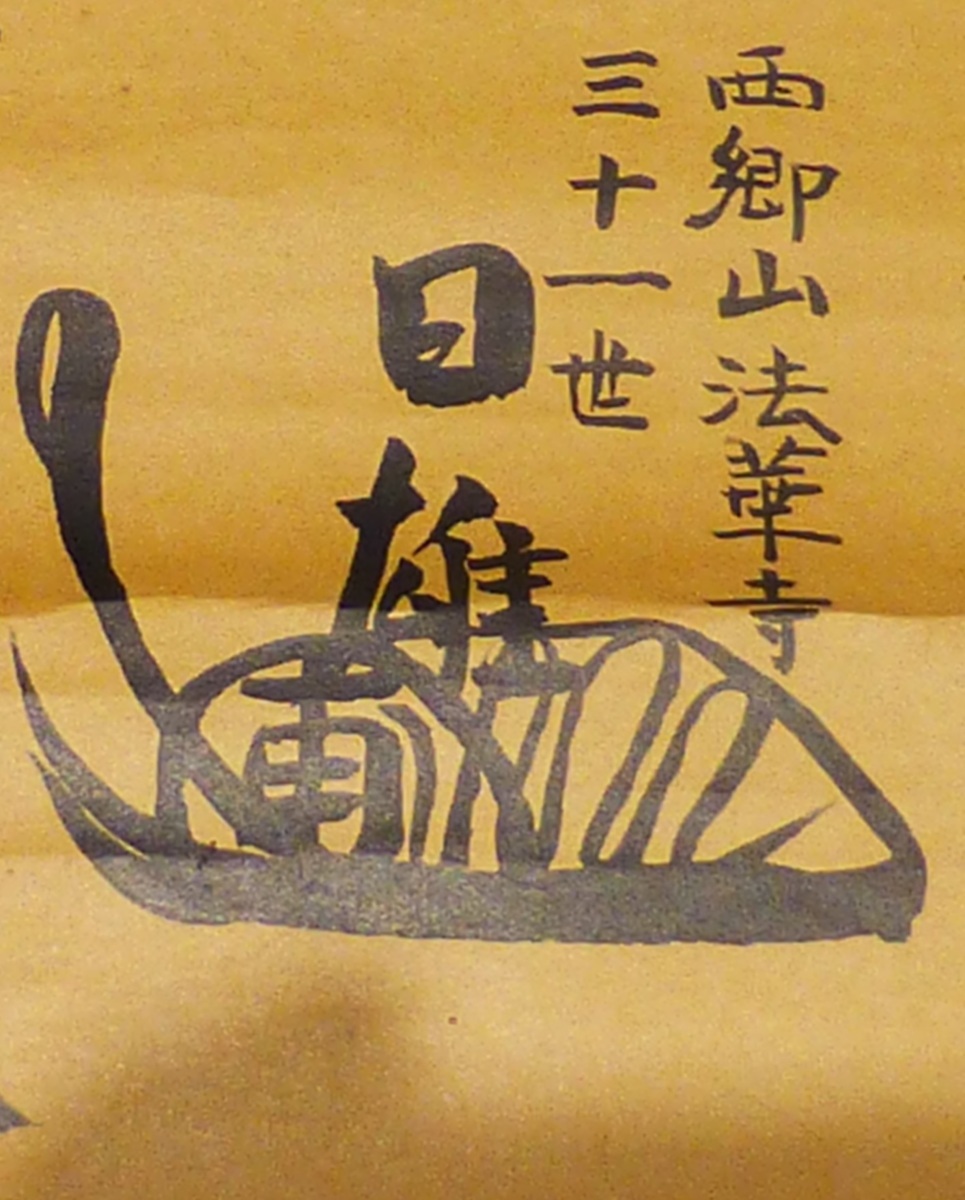 西郷山法華寺
三十一世
日雄